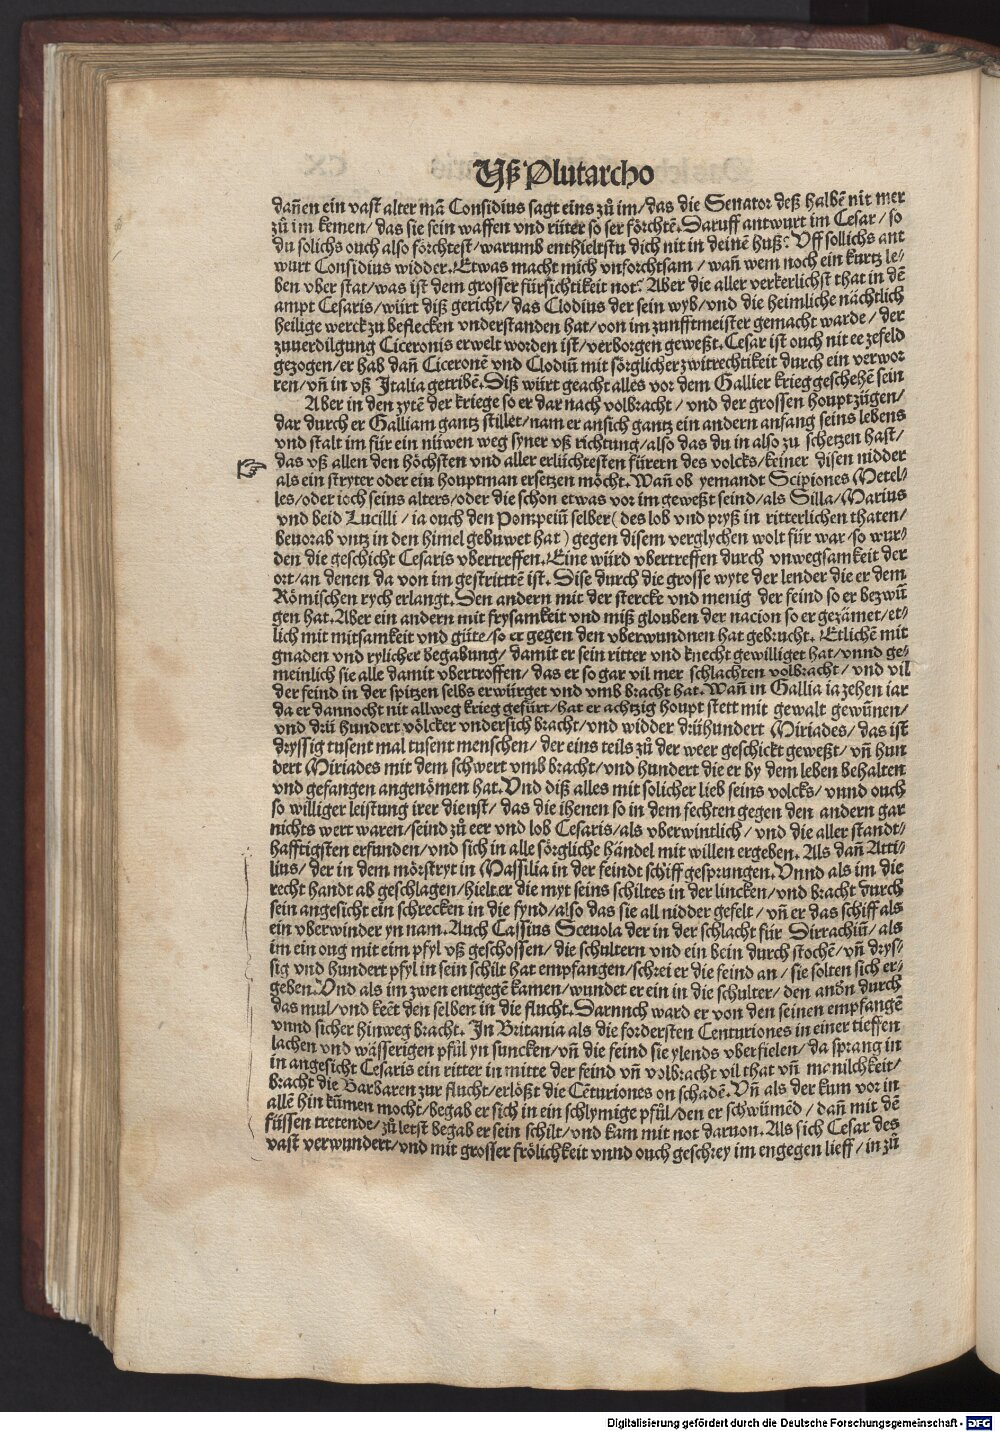 Vß Plutarcho
dañen ein vast alter mā Considius sagt eins zů im / das die Senator deß halbē nit mer
zů im kemen / das sie sein waffen vnd rüter so ser förchtē. Daruff antwurt im Cesar / so
du solichs ouch also förchtest / warumb enthieltstu dich nit in deinē huß? Vff sollichs ant
wurt Considius widder. Etwas macht mich vnforchtsam / wañ wem noch ein kurtz le⸗
ben vber stat / was ist dem grosser fürsichtikeit not? Aber die aller verkerlichst that in dē
ampt Cesaris / würt diß gericht / das Clodius der sein wyb / vnd die heimliche nächtlich
heilige werck zu beflecken vnderstanden hat / von im zunfftmeister gemacht warde / der
zuuerdilgung Ciceronis erwelt worden ist / verborgen geweßt. Cesar ist ouch nit ee zefeld
gezogen / er hab dañ Ciceronē vnd Clodiū mit sörglicher zwitrechtikeit durch ein verwor
ren / vñ in vß Italia getribē. Diß würt geacht alles vor dem Gallier krieg geschehē sein
Aber in den zytē der kriege so er dar nach volbracht / vnd der grossen houptzügen /
dar durch er Galliam gantz stillet / nam er an sich gantz ein andern anfang seins lebens
vnd stalt im für ein nüwen weg syner vß richtung / also das du in also zu schetzen hast /
das vß allen den höchsten vnd aller erlüchtesten fürern des volcks / keiner disen nidder
als ein stryter oder ein houptman ersetzen möcht. Wañ ob yemandt Scipiones Metel⸗
les / oder ioch seins alters / oder die schon etwas vor im geweßt seind / als Silla / Marius
vnd beid Lucilli / ia ouch den Pompeiū selber ( des lob vnd pryß in ritterlichen thaten /
beuorab vntz in den himel gebuwet hat ) gegen disem verglychen wolt für war so wur⸗
den die geschicht Cesaris vbertreffen. Eine würd vbertreffen durch vnwegsamkeit der
ort / an denen da von im gestrittē ist. Dise durch die grosse wyte der lender die er dem
Römischen rych erlangt. Den andern mit der stercke vnd menig der feind so er bezwū
gen hat. Aber ein andern mit frysamkeit vnd miß glouben der nacion so er gezämet / et⸗
lich mit mitsamkeit vnd güte / so er gegen den vberwundnen hat gebrucht. Etlichē mit
gnaden vnd rylicher begabung / damit er sein ritter vnd knecht gewilliget hat / vnnd ge⸗
meinlich sie alle damit vbertroffen / das er so gar vil mer schlachten volbracht / vnd vil
der feind in der spitzen selbs erwürget vnd vmb bracht hat. Wañ in Gallia ia zehen iar
da er dannocht nit allweg krieg gefürt / hat er achtzig houpt stett mit gewalt gewūnen /
vnd drü hundert völcker vndersich bracht / vnd widder drühundert Miriades / das ist
dryssig tusent mal tusent menschen / der eins teils zů der weer geschickt geweßt / vñ hun
dert Miriades mit dem schwert vmb bracht / vnd hundert die er by dem leben behalten
vnd gefangen angenōmen hat. Vnd diß alles mit solicher lieb seins volcks / vnnd ouch
so williger leistung irer dienst / das die ihenen so in dem fechten gegen den andern gar
nichts wert waren / seind zů eer vnd lob Cesaris / als vberwintlich / vnd die aller standt⸗
hafftigsten erfunden / vnd sich in alle sörgliche händel mit willen ergeben. Als dañ Atti⸗
lius / der in dem mörstryt in Massilia in der feindt schiff gesprungen. Vnnd als im die
recht handt ab geschlagen / hielt er die myt seins schiltes in der lincken / vnd bracht durch
sein angesicht ein schrecken in die fynd / also das sie all nidder gefelt / vñ er das schiff als
ein vberwinder yn nam. Auch Cassius Sceuola der in der schlacht für Dirrachiū / als
im ein oug mit eim pfyl vß geschossen / die schultern vnd ein bein durch stochē / vñ drys⸗
sig vnd hundert pfyl in sein schilt hat empfangen / schrei er die feind an / sie solten sich er⸗
geben. Vnd als im zwen entgegē kamen / wundet er ein in die schulter / den andn durch
das mul / vnd keēt den selben in die flucht. Darnnch ward er von den seinen empfangē
vnnd sicher hinweg bracht. In Britania als die fordersten Centuriones in einer tieffen
lachen vnd wässerigen pfůl yn suncken / vñ die feind sie ylends vberfielen / da sprang in
in angesicht Cesaris ein ritter in mitte der feind vñ volbracht vil that vñ menilchkeit /
bracht die Barbaren zur flucht / erlößt die Cēturiones on schadē. Vñ als der kum vor in
allē hin kūmen mocht / begab er sich in ein schlymige pfůl / den er schwümēd / dañ mit dē
füssen tretende / zů letst begab er sein schilt / vnd kam mit not daruon. Als sich Cesar des
vast verwundert / vnd mit grosser frölichkeit vnnd ouch geschrey im engegen lieff / in zů
Digitalisierung gefördert durch die Deutsche Forschungsgemeinschaft - DFG